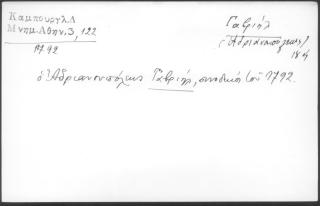 Καμπουργλ.Δ
Μνημ.Αθην.3,122
1792
Γαβριήλ
(Ἀδριανουπόλεως)
18ος
ὁ Ἀδριανουπόλεως Γαβριήλ, συνοδικός τοῦ 1792.